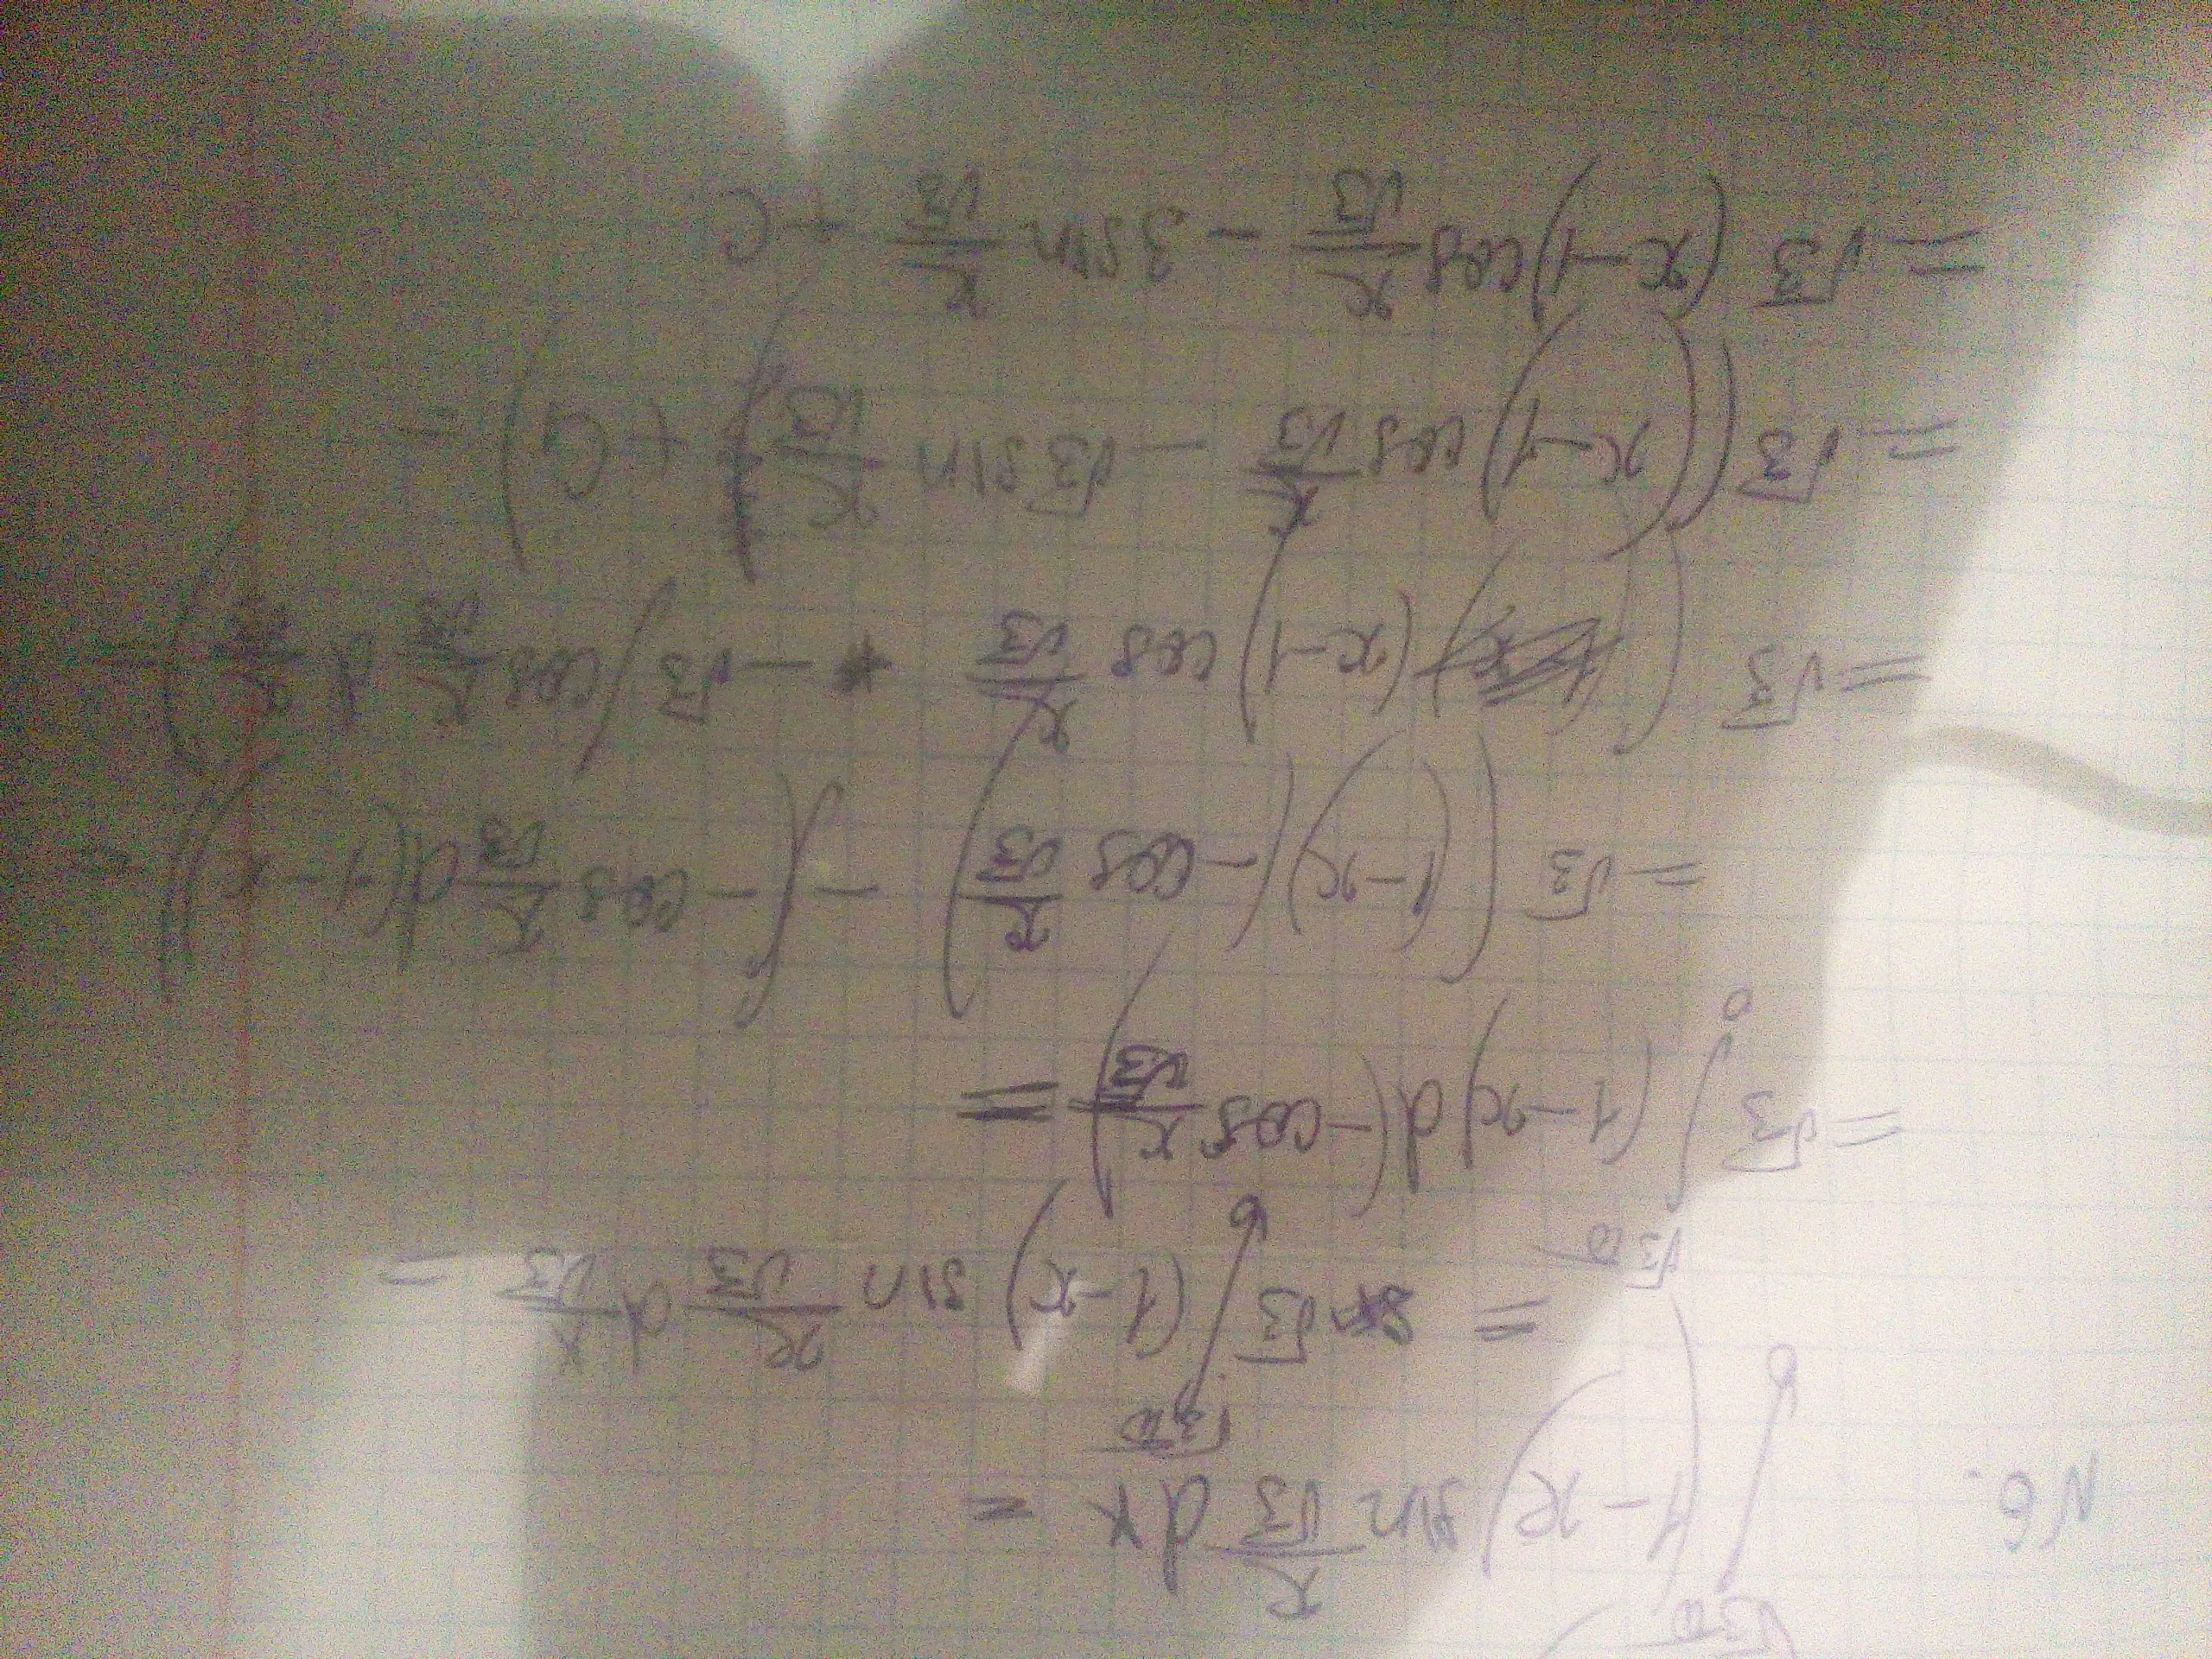 N6. ∫₀^{√3π} (1-x) sin x/√3 dx =
= √3 ∫₀^{√3π} (1-x) sin x/√3 d x/√3 =
= √3 ∫₀^{√3π} (1-x) d(-cos x/√3) =
= √3 ((1-x)(-cos x/√3) - ∫ -cos x/√3 d(1-x)) =
= √3 ((x-1) cos x/√3 - √3 ∫ cos x/√3 d x/√3) =
= √3 ((x-1) cos x/√3 - √3 sin x/√3 + C₁) =
= √3 (x-1) cos x/√3 - 3 sin x/√3 + C